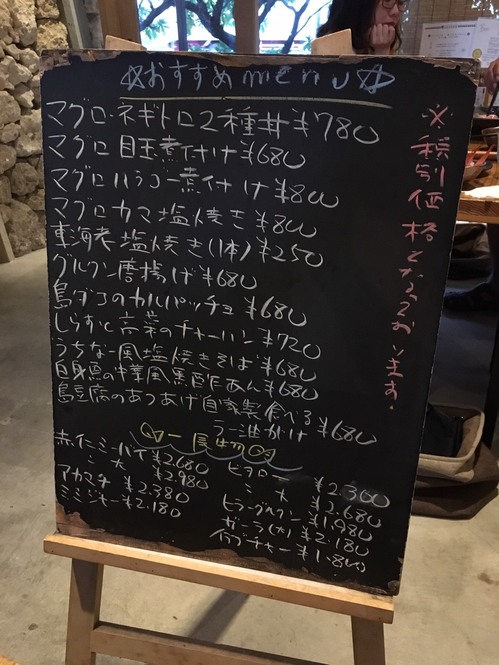 ☆おすすめmenu☆
マグロ・ネギトロ2種丼¥780
マグロ目玉煮付け¥680
マグロハラゴー煮付け¥800
マグロカマ塩焼き¥800
車海老塩焼き(1本)¥250
グルクン唐揚げ¥680
島ダコのカルパッチョ¥680
しらすと高菜のチャーハン¥720
うちなー風塩焼きそば¥680
白身魚の中華風黒酢あん¥680
島豆腐のあつあげ自家製食べる
ラー油がけ ¥680
※税別価格となっております。
赤仁ミーバイ ¥2.680
〃 大 ¥2.980
アカマチ ¥2.380
ミミジャー ¥2.180
ヒタロー ¥2.300
〃 大 ¥2.680
ヒラーグルクン ¥1.980
ガーラ(大) ¥2.180
イラブチャー ¥1.800